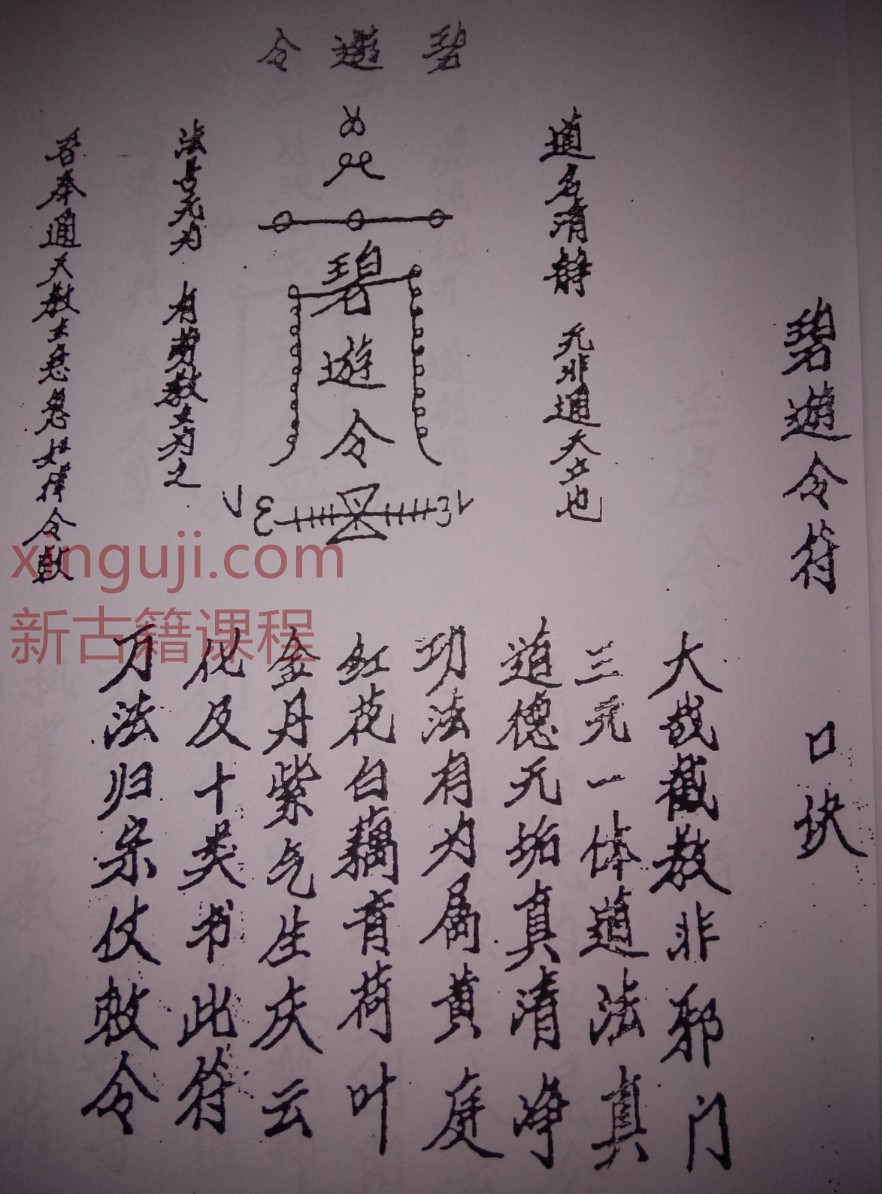 碧遊令符 口块
碧遊令
道名清静 无非通天立也
碧遊令
法古无为 有劳教主为之
吾奉通天教主急急如律令敕
大哉截教非邪门
三元一体道法真
道德无垢真清净
功法有为属黄庭
红花白藕青荷叶
金丹紫气生庆云
化及十类书此符
万法归宗仗敕令
xinguji.com
新古籍课程